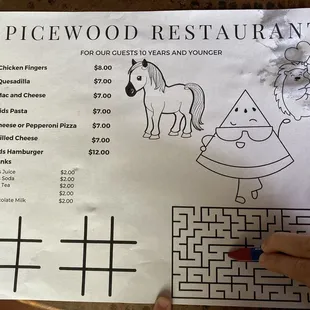 PICEWOOD RESTAURANT
FOR OUR GUESTS 10 YEARS AND YOUNGER
Chicken Fingers $8.00
Quesadilla $7.00
Mac and Cheese $7.00
ids Pasta $7.00
heese or Pepperoni Pizza $7.00
illed Cheese $7.00
ds Hamburger $12.00
nks
Juice $2.00
Soda $2.00
Tea $2.00
$2.00
olate Milk $2.00